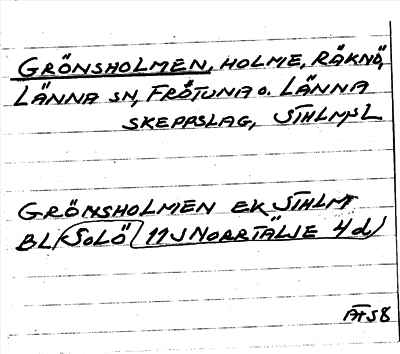 GRÖNSHOLMEN, HOLME, RÄKNÖ,
LÄNNA SN, FRÖTUNA o. LÄNNA
SKEPPSLAG, STHLMS L
GRÖNSHOLMEN EK STHLM
BL (SOLÖ) 11J NORRTÄLJE 4d
ÄTS8